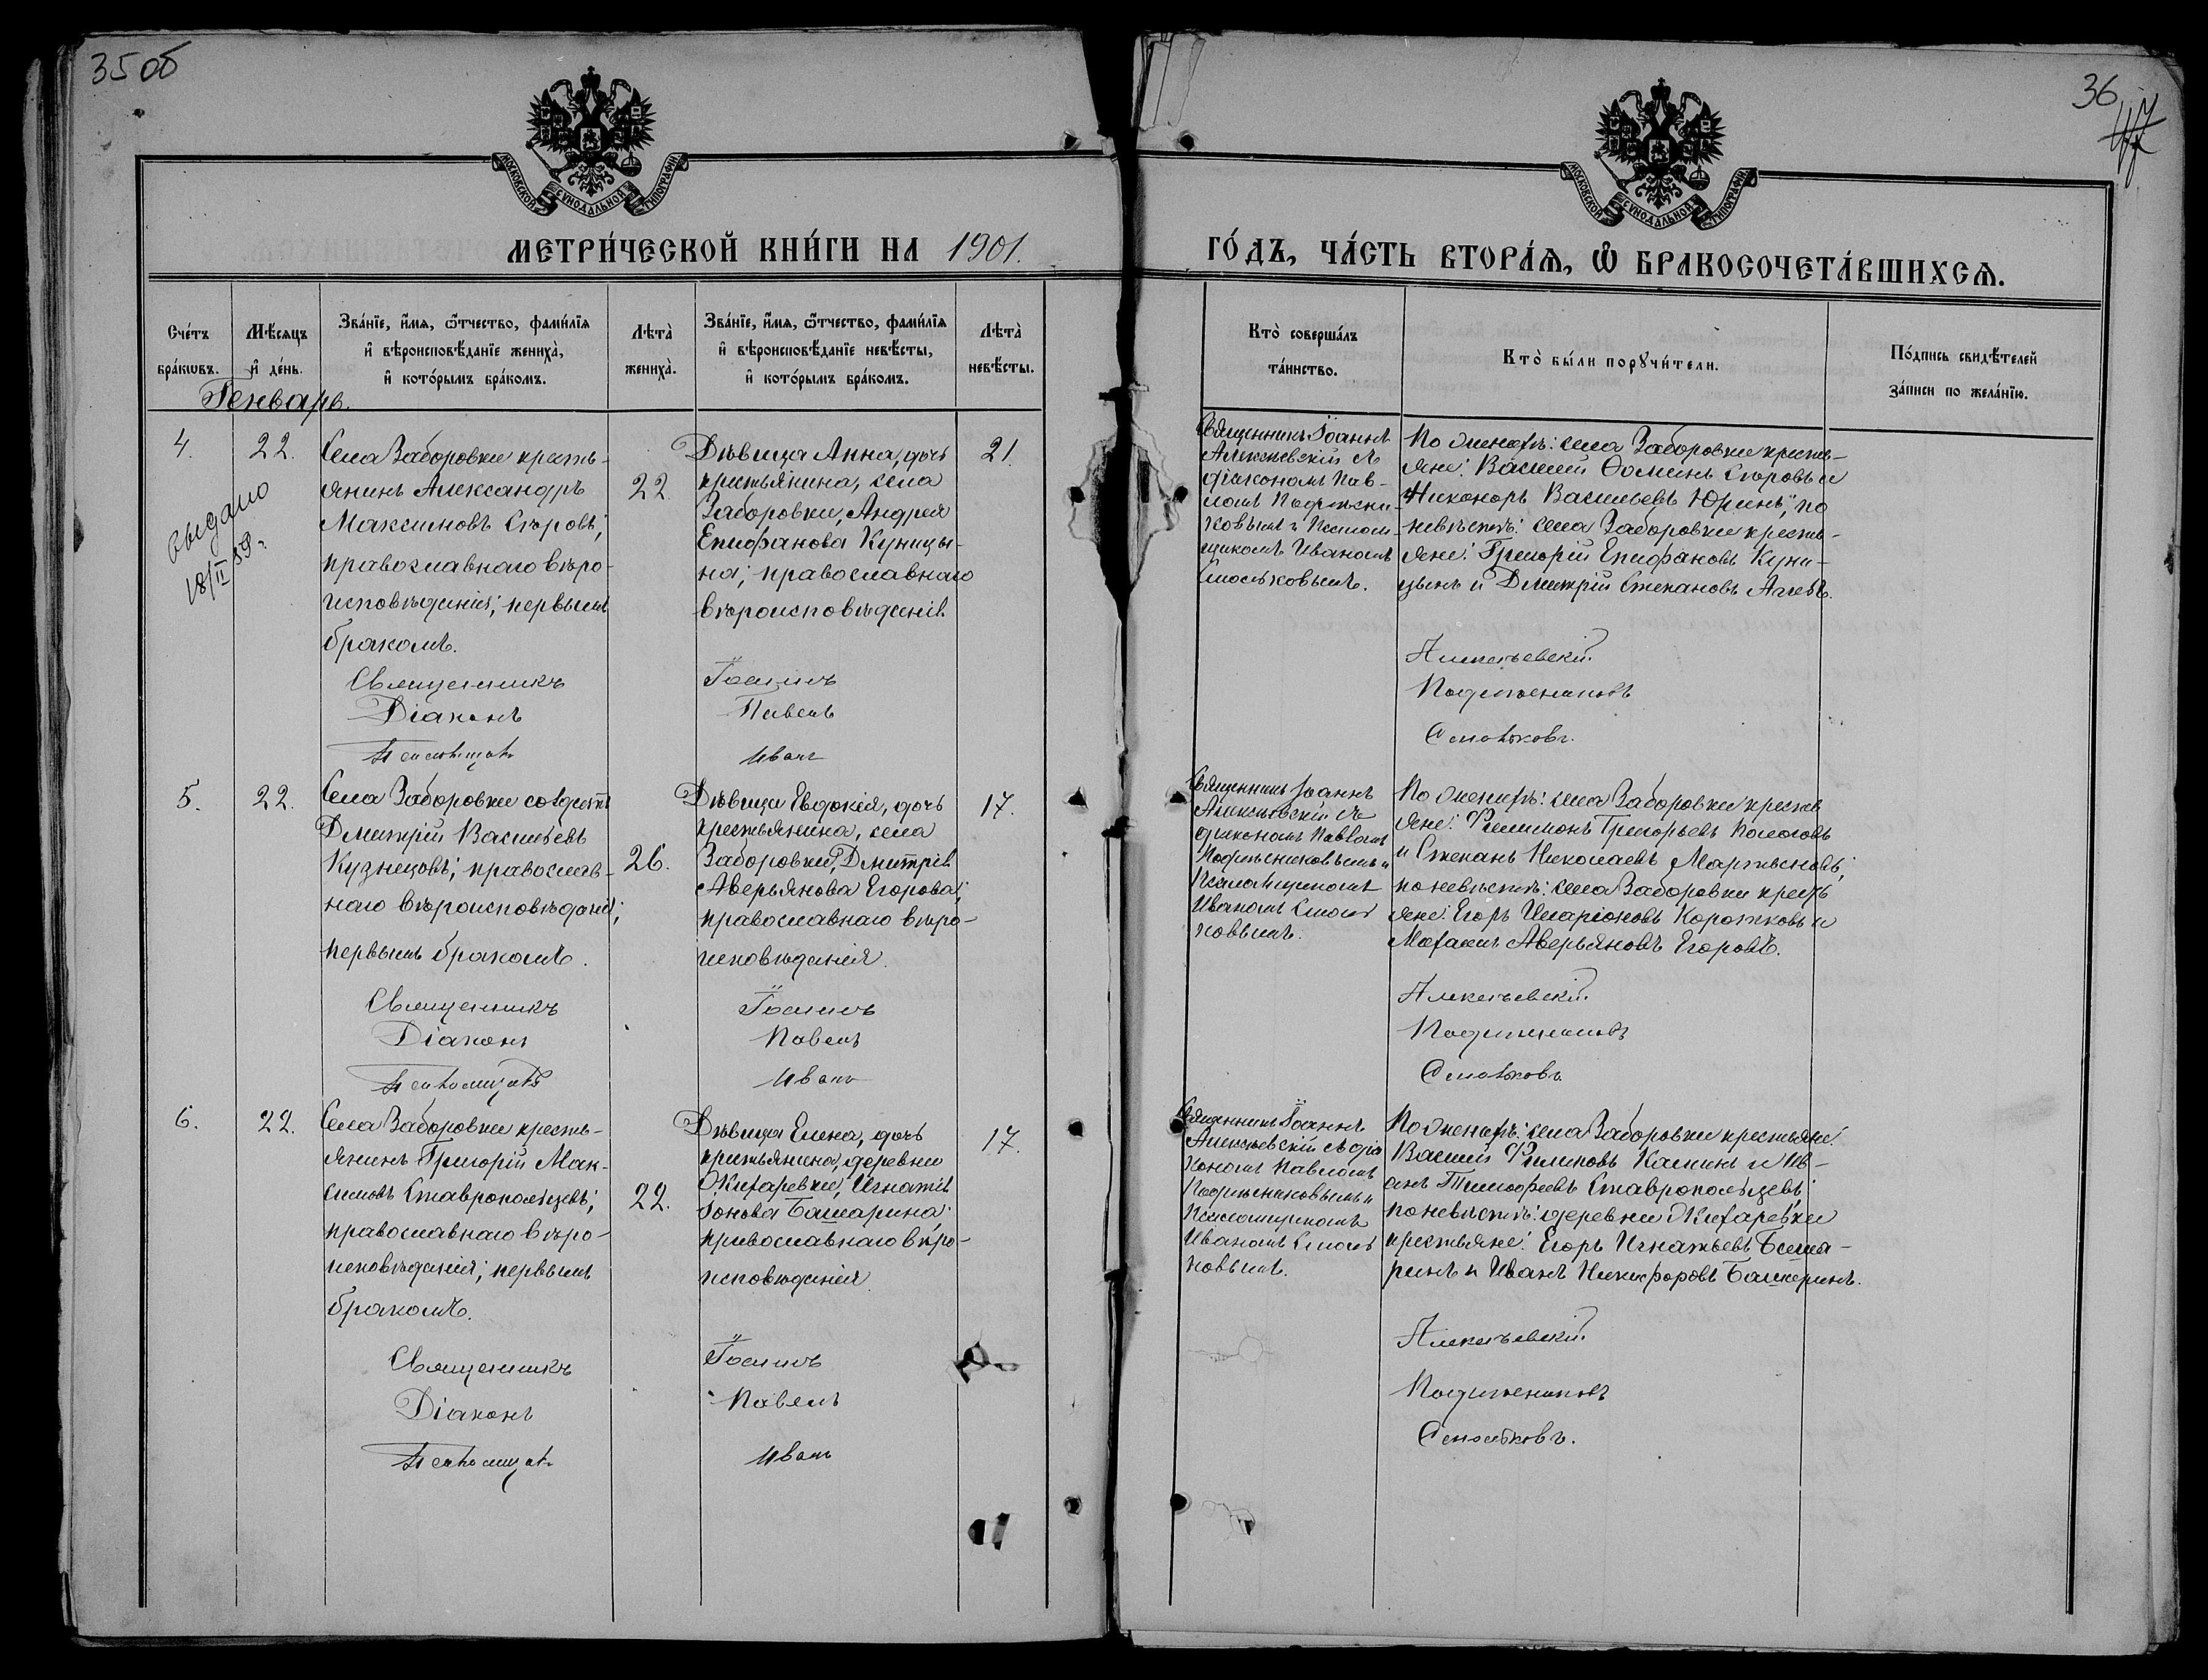 35 об
36
МОСКОВСКОЙ СУНОДАЛЬНОЙ ТИПОГРАФІИ
МОСКОВСКОЙ СУНОДАЛЬНОЙ ТИПОГРАФІИ
МЕТРИ́ЧЕСКОЙ КНИ́ГИ НА 1901.
ГО́ДЪ, ЧА́СТЬ ВТОРА́Ѧ, Ѽ БРАКОСОЧЕТА́ВШИХСѦ.
Сче́тъ
бра́кѡвъ.
Мѣ́сяцъ
и҆ де́нь.
Зва́нїе, и҆́мѧ, ѻ҆́тчество, фамѝлїѧ
и҆ вѣроисповѣ́данїе жениха̀,
и҆ кото́рымъ бра́комъ.
Лѣта̀
жениха̀.
Зва́нїе, и҆́мѧ, ѻ҆́тчество, фамѝлїѧ
и҆ вѣроисповѣ́данїе невѣ́сты,
и҆ кото́рымъ бра́комъ.
Лѣта̀
невѣ́сты.
Кто̀ соверша́лъ
та́инство.
Кто̀ бы́ли порꙋчи́тели.
По́дпись свидѣ́телей
за́писи по жела́нїю.
Генварь.
4.
22.
выдано
18/II 59 г.
Села Заборовки кресть-
янинъ Александръ
Максимовъ Сѣровъ,
православнаго вѣро-
исповѣданія; первымъ
бракомъ.
22
Дѣвица Анна, дочь
крестьянина, села
Заборовки, Андрея
Епифанова Куницы-
на; православнаго
вѣроисповѣданія
21.
Священникъ Іоаннъ
Алексѣевскій съ
діакономъ Пав-
ломъ Подъячни-
ковымъ и Псалом-
щикомъ Иваномъ
Смольковымъ.
По женихѣ: села Заборовки кресть-
яне: Василій Ѳоминъ Сѣровъ и
Никоноръ Васильевъ Юринъ; по
невѣстѣ: села Заборовки кресть-
яне: Григорій Епифановъ Куни-
цынъ и Дмитрій Степановъ
Священникъ Іоаннъ Алексѣевскій.
Діаконъ Павелъ
Псаломщикъ Иванъ Смольковъ.
5.
22.
Села Заборовки солдатъ
Дмитрій Васильевъ
Кузнецовъ; православ-
наго вѣроисповѣданія;
первымъ бракомъ.
26.
Дѣвица Евдокія, дочь
крестьянина, села
Заборовки, Дмитрія
Аверьянова Егорова;
православнаго вѣро-
исповѣданія.
17.
Священникъ Іоаннъ
Алексѣевскій съ
діакономъ Павломъ
и
Псаломщикомъ
Иваномъ Смоль
ковымъ.
По женихѣ: села Заборовки кресть
яне: Филимонъ Григорьевъ
и Степанъ Николаевъ Мартьяновъ;
по невѣстѣ: села Заборовки кресть
яне: Егоръ Иларіоновъ Коротковъ и
Аверьяновъ Егоровъ.
Священникъ Іоаннъ Алексѣевскій.
Діаконъ Павелъ
Псаломщикъ Иванъ Смольковъ
6.
22.
Села Заборовки кресть-
янинъ Григорій Мак-
симовъ Ставропольцевъ;
православнаго вѣро-
исповѣданія; первымъ
бракомъ.
22.
Дѣвица Елена, дочь
крестьянина, деревни
Жихаревки, Игнатія
Іонова Башарина;
православнаго вѣро-
исповѣданія.
17.
Священникъ Іоаннъ
Алексѣевскій съ діа
кономъ Павломъ
и
Псаломщикомъ
Иваномъ Смоль
ковымъ.
По женихѣ: села Заборовки крестьяне:
Василій Филиповъ Калинъ и Ив-
анъ Тимофеевъ Ставропольцевъ;
по невѣстѣ: деревни Жихаревки
крестьяне: Егоръ Игнатьевъ Баша-
ринъ и Иванъ Никифоровъ Башаринъ.
Священникъ Іоаннъ Алексѣевскій.
Діаконъ Павелъ
Псаломщикъ Иванъ Смольковъ.